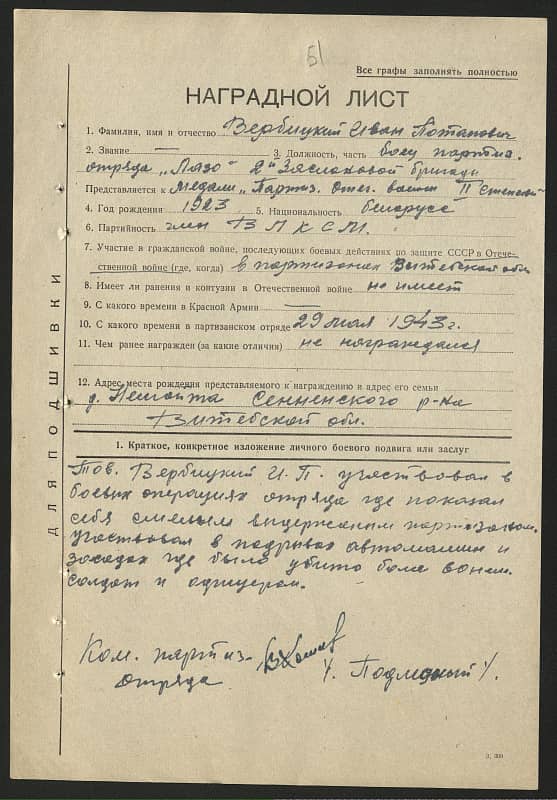 Все графы заполнять полностью
НАГРАДНОЙ ЛИСТ
1. Фамилия, имя и отчество Вербицкий Иван Потапович
2. Звание — 3. Должность, часть боец партиз.
отряда „Лазо" 2й Заслоновой бригады
Представляется к медали „Партиз. Отеч. войны II степени"
4. Год рождения 1923 5. Национальность беларус
6. Партийность член ВЛКСМ.
7. Участие в гражданской войне, последующих боевых действиях по защите СССР в Отече-
ственной войне (где, когда) в партизанах Витебской обл
8. Имеет ли ранения и контузии в Отечественной войне не имеет
9. С какого времени в Красной Армии —
10. С какого времени в партизанском отряде 29 мая 1943 г.
11. Чем ранее награжден (за какие отличия) не награждался
12. Адрес места рождения представляемого к награждению и адрес его семьи
д. Сенненского р-на
Витебской обл.
1. Краткое, конкретное изложение личного боевого подвига или заслуг
Тов. Вербицкий И. П. участвовал в
боевых операциях отряда где показал
себя смелым выдержаным партизаном.
участвовал в подрывах автомашин и
засадах где было убито
солдат и офицером.
Ком. партиз-
отряда
ДЛЯ ПОДШИВКИ